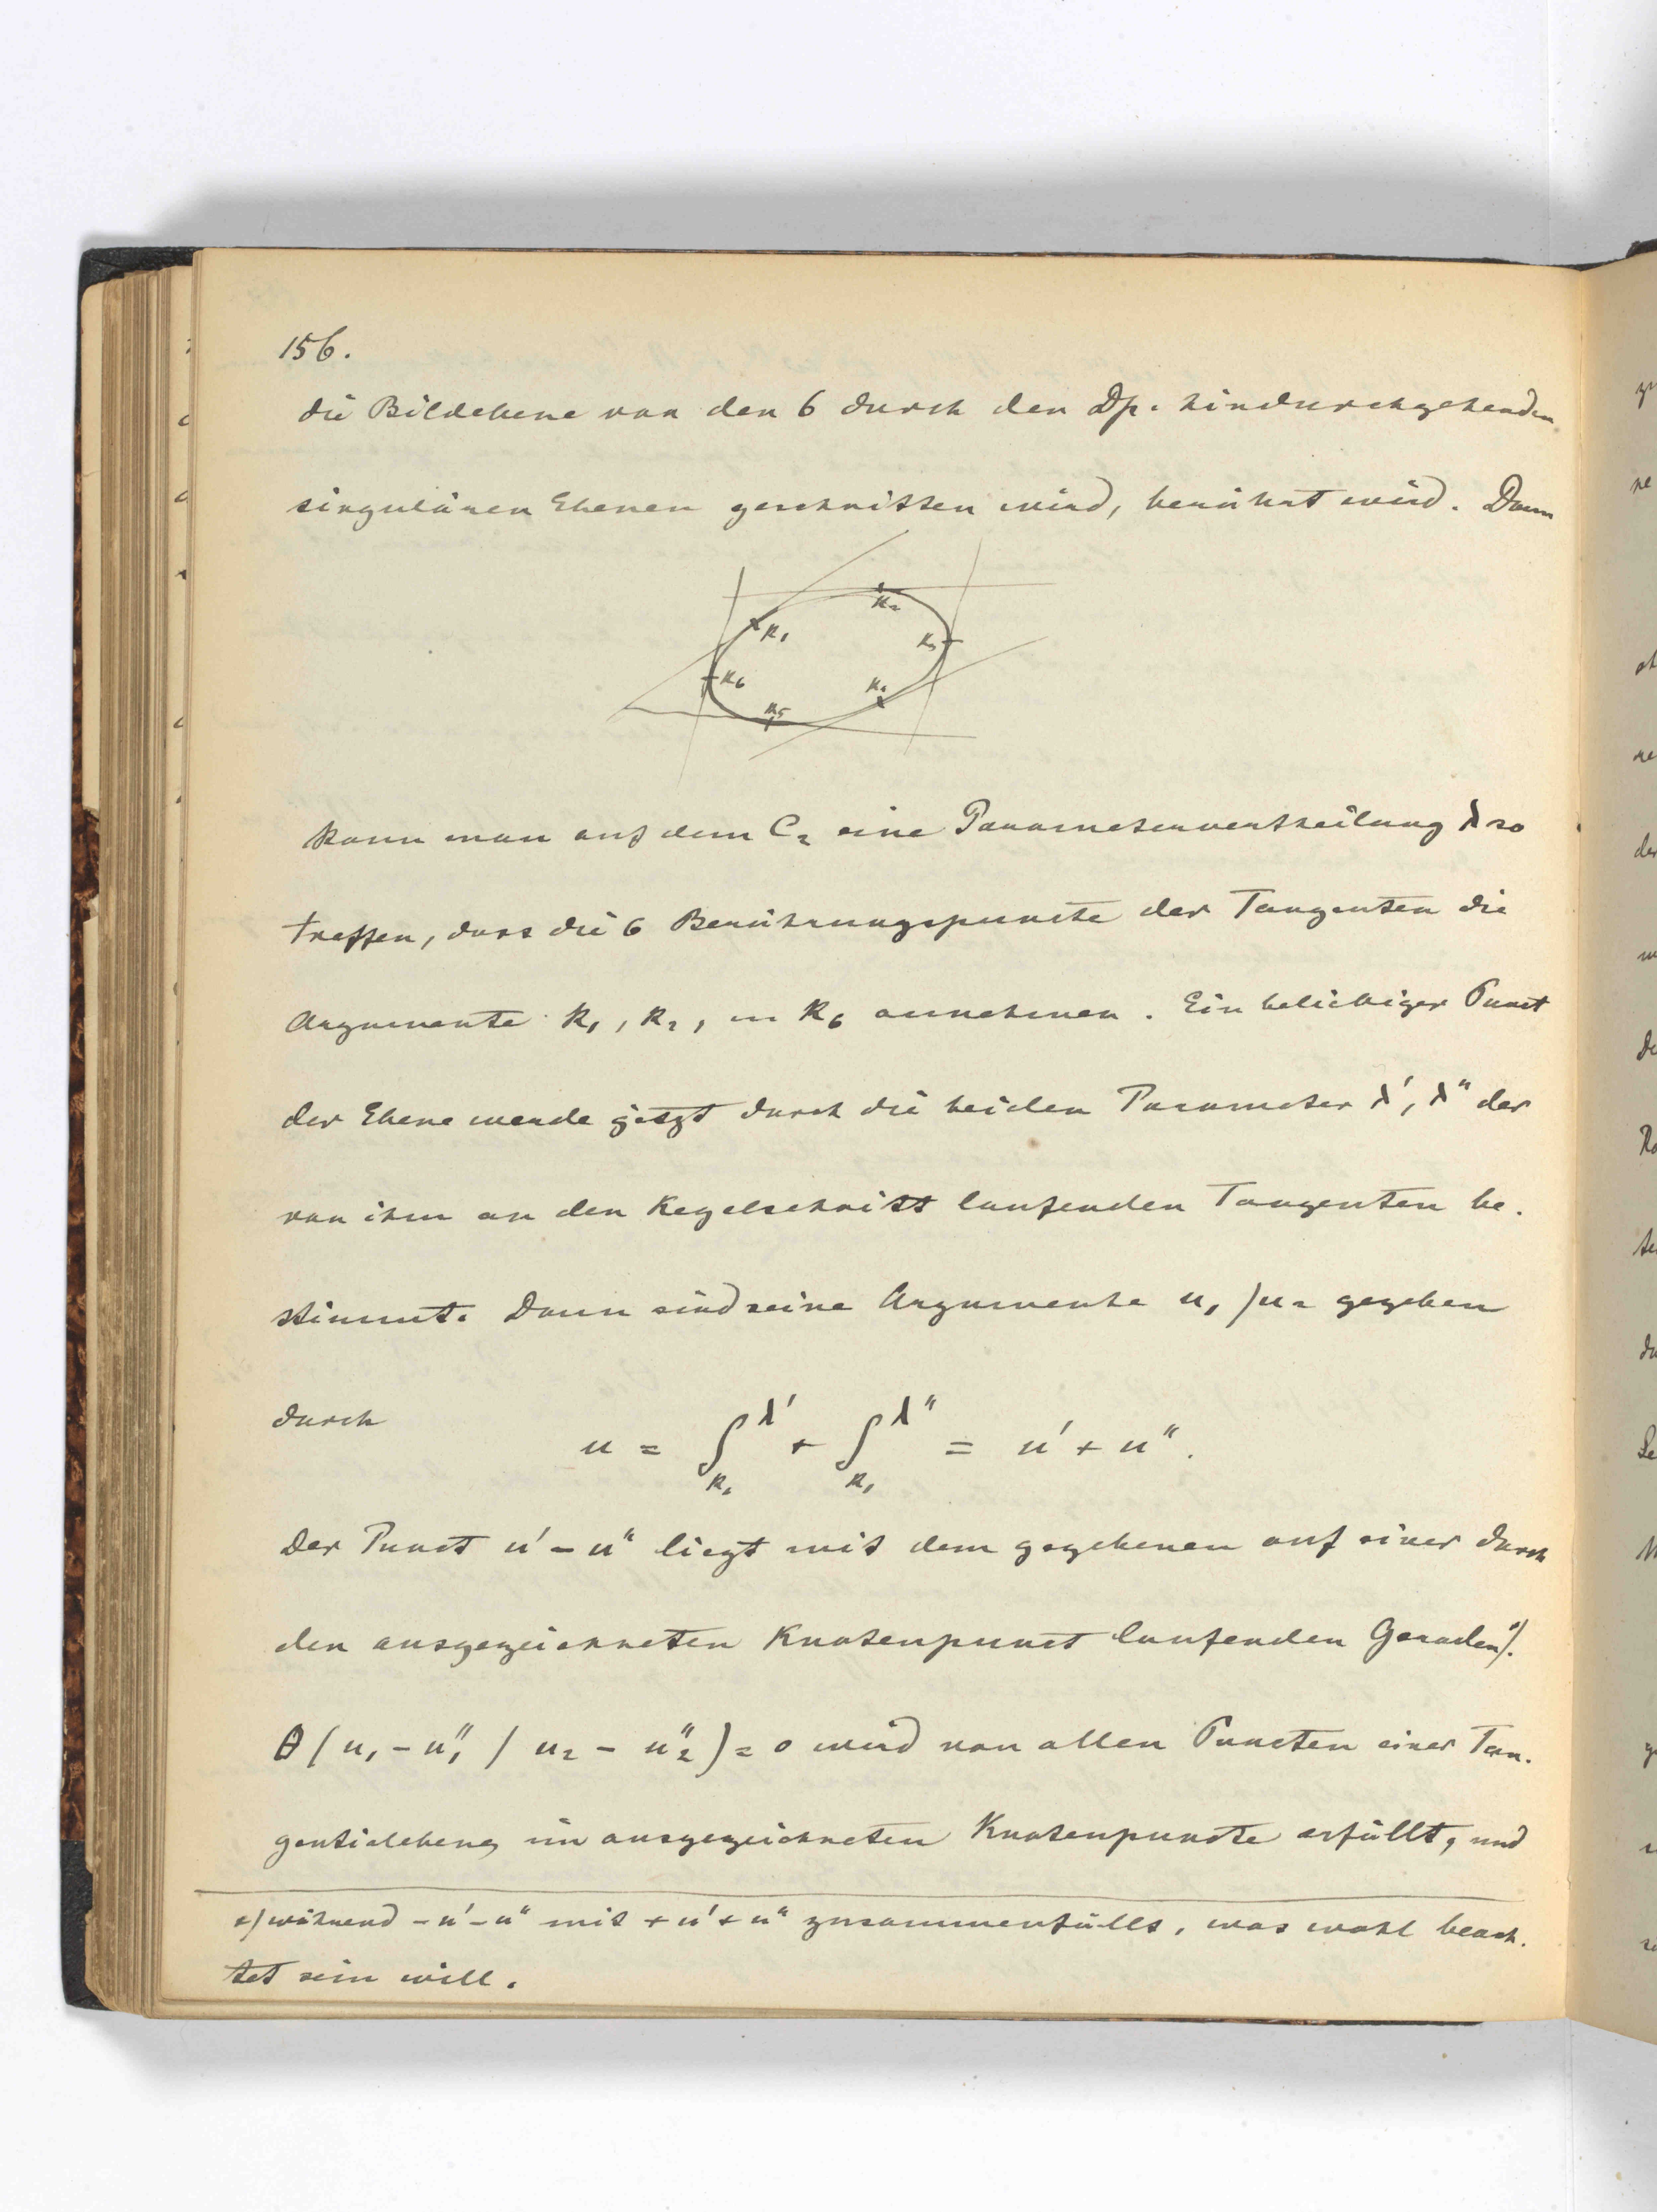 156.
die Bildebene von den 6 durch den Dp. hindurchgehenden
singulären Ebenen geschnitten wird, berührt wird. Dann
k₂
k₁
k₃
k₆
k₄
k₅
kann man auf dem C₂ eine Parametervertheilung λ so
treffen, dass die 6 Berührungspuncte der Tangenten die
Argumente k₁, k₂, ... k₆ annehmen. Ein beliebiger Punct
der Ebene werde jetzt durch die beiden Parameter λ', λ'' der
von ihm an den Kegelschnitt laufenden Tangenten be-
stimmt. Dann sind seine Argumente u₁ / u₂ gegeben
durch
u = ∫_{k₁}^{λ'} + ∫_{k₁}^{λ''} = u' + u''.
Der Punct u' – u'' liegt mit dem gegebenen auf einer durch
den ausgezeichneten Knotenpunct laufenden Geraden*).
θ(u₁ – u₁'' / u₂ – u₂'') = 0 wird von allen Puncten einer Tan-
gentialebene im ausgezeichneten Knotenpuncte erfüllt, und
*) während – u' – u'' mit + u' + u'' zusammenfällt, was wohl beach-
tet sein will.